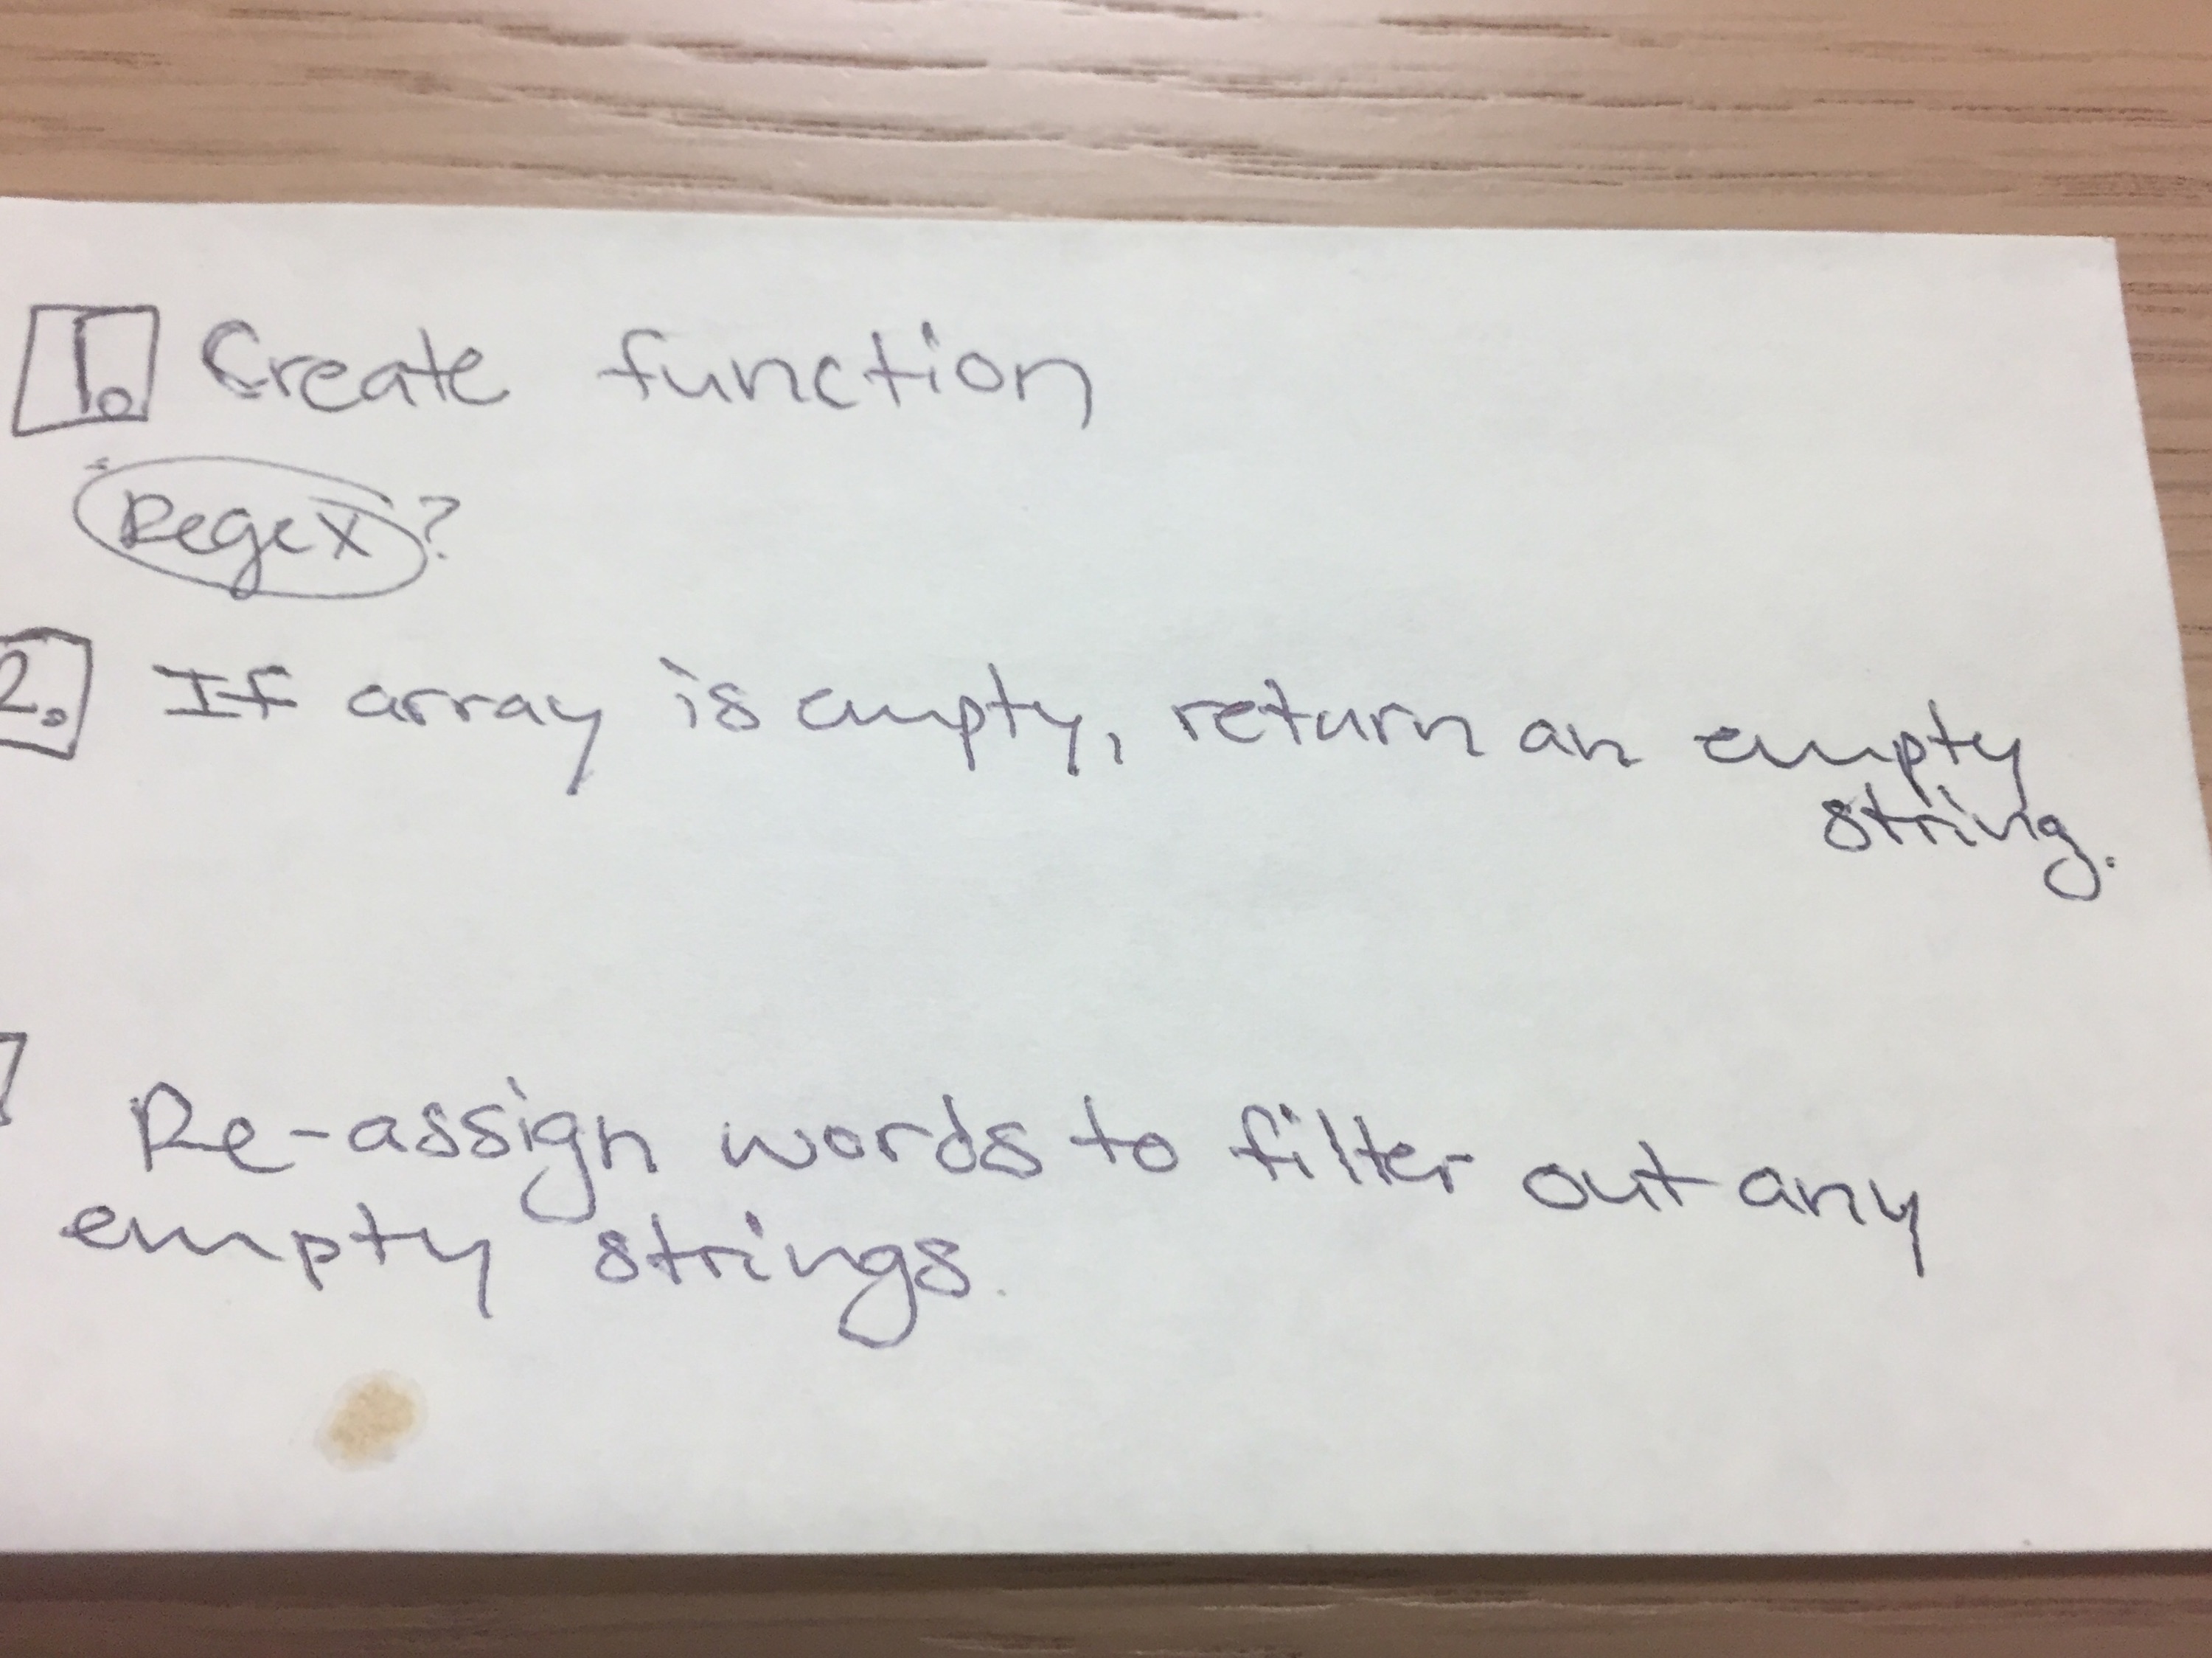 1. Create function
Regex?
2. If array is empty, return an empty
string.
Re-assign words to filter out any
empty strings.